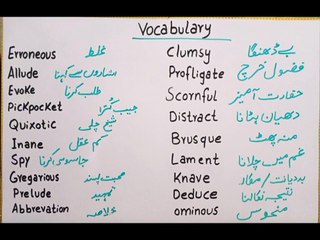 Vocabulary
Erroneous غلط
Allude اشاروں سے کہنا
Evoke طلب کرنا
PicKpocket جیب کترا
Quixotic شیخ چلی
Inane کم عقل
Spy جاسوسی کرنا
Gregarious صحبت پسند
Prelude تمہید
Abbrevation خلاصہ
Clumsy بے ڈھنگا
Profligate فضول خرچ
Scornful حقارت آمیز
Distract دھیان ہٹانا
Brusque منہ پھٹ
Lament غم میں چلانا
Knave بددیانت / مکار
Deduce نتیجہ نکالنا
ominous منحوس